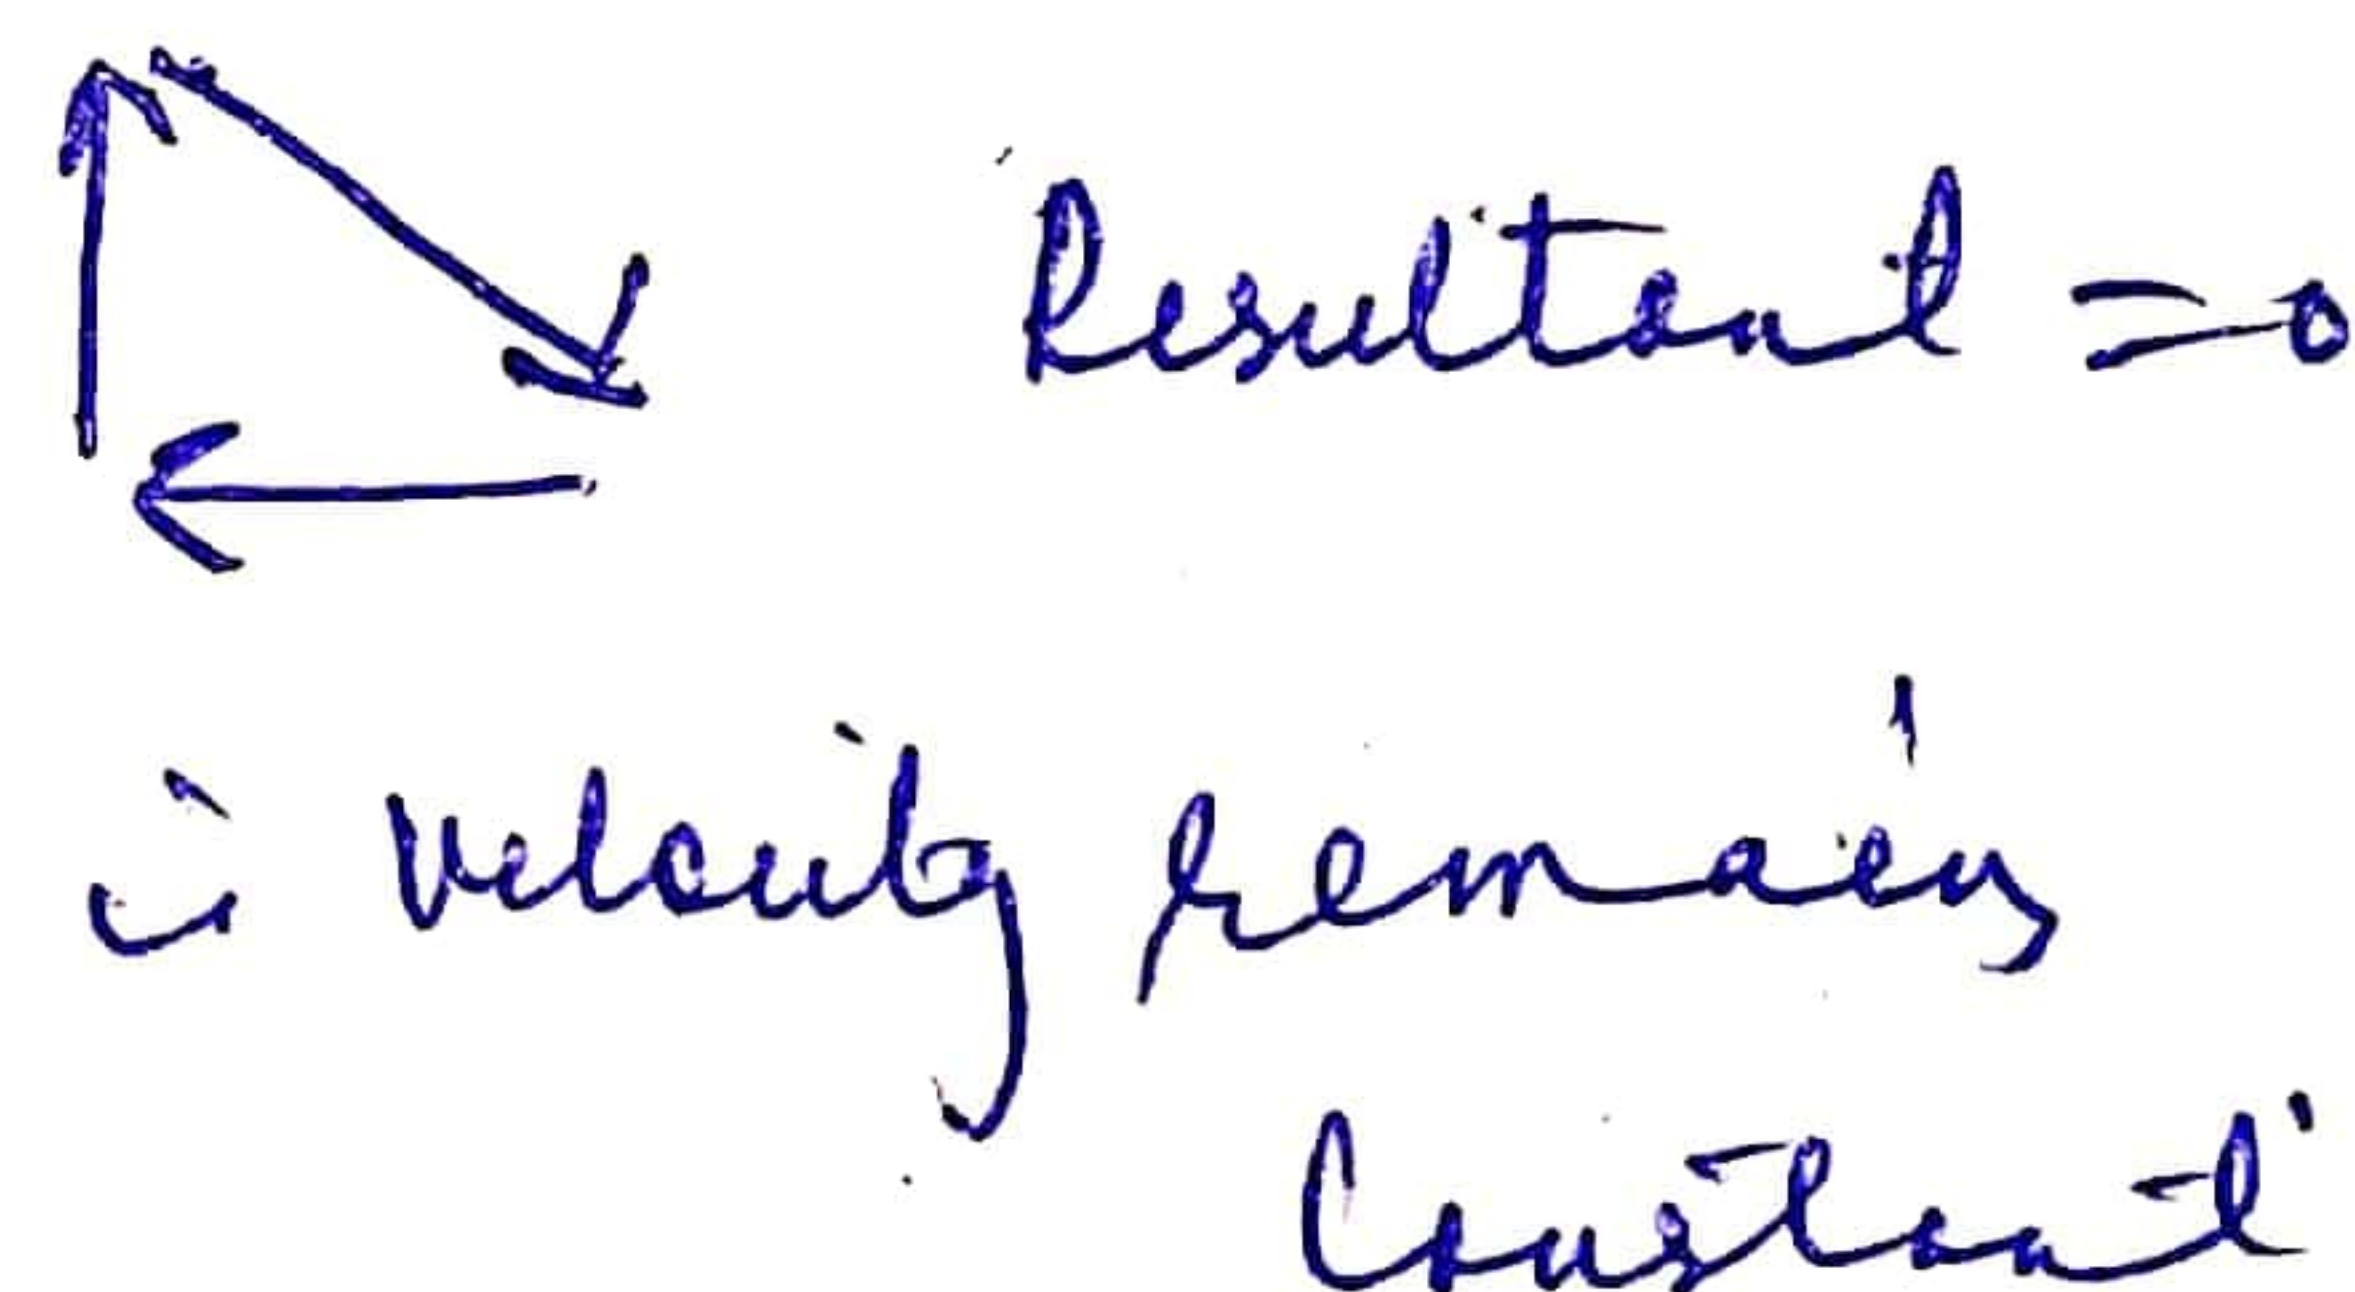 Resultant = 0
∴ velocity remains
constant